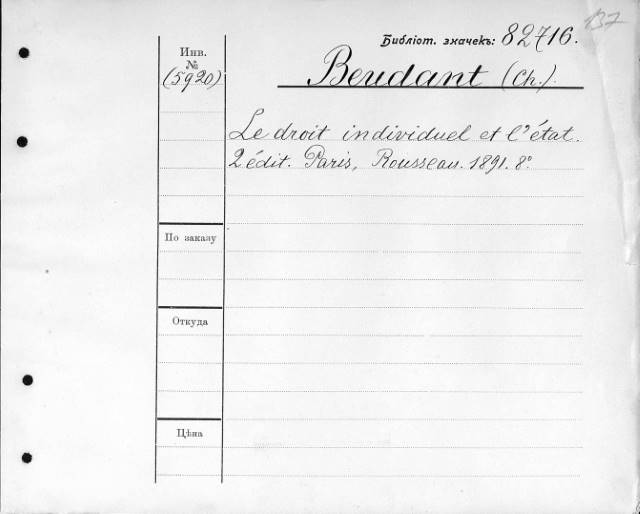 137
Библіот. значекъ: 82716.
Инв.
№
(5920)
Beudant (Ch.).
Le droit individuel et l'état.
2 édit. Paris, Rousseau. 1891. 8°
По заказу
Откуда
Цѣна